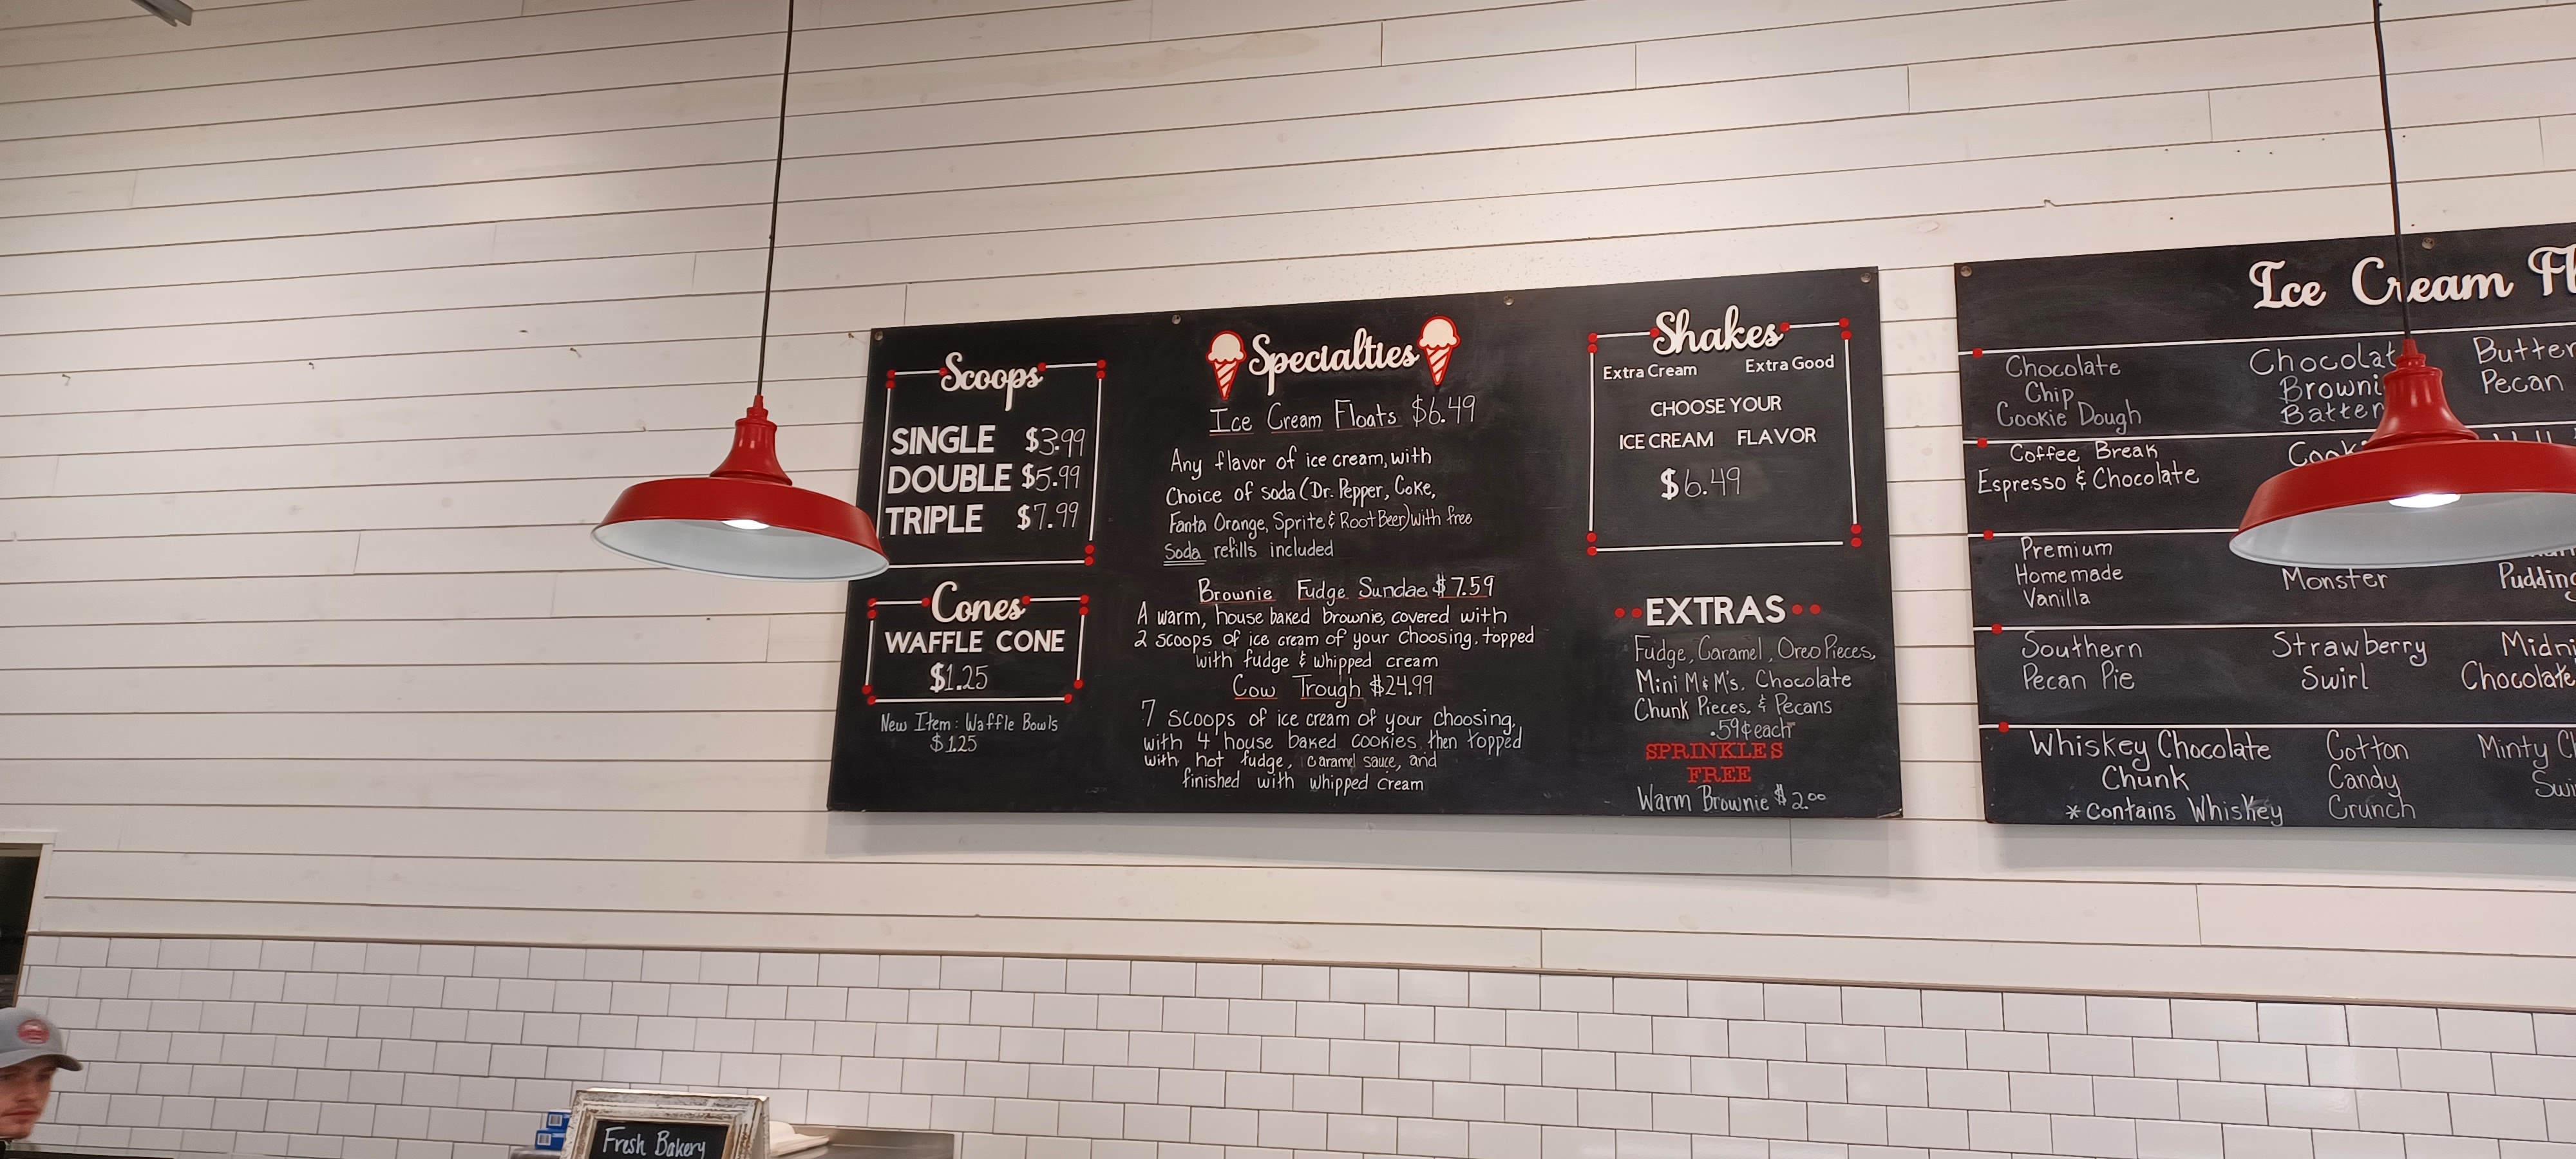 Scoops
SINGLE $3.99
DOUBLE $5.99
TRIPLE $7.99
Cones
WAFFLE CONE
$1.25
New Item: Waffle Bowls
$1.25
Specialties
Ice Cream Floats $6.49
Any flavor of ice cream, with
Choice of soda (Dr. Pepper, Coke,
Fanta Orange, Sprite & Root Beer) with free
Soda refills included
Brownie Fudge Sundae $7.59
A warm, house baked brownie, covered with
2 scoops of ice cream of your choosing, topped
with fudge & whipped cream
Cow Trough $24.99
7 scoops of ice cream of your choosing,
with 4 house baked cookies, then topped
with hot fudge, caramel sauce, and
finished with whipped cream
Shakes
Extra Cream Extra Good
CHOOSE YOUR
ICE CREAM FLAVOR
$6.49
EXTRAS
Fudge, Caramel, Oreo Pieces,
Mini M&M's, Chocolate
Chunk Pieces, & Pecans
.59¢ each
SPRINKLES
FREE
Warm Brownie $2.00
Ice Cream
Chocolate
Chip
Cookie Dough
Butter
Pecan
Coffee Break
Espresso & Chocolate
Premium
Homemade
Vanilla
Monster
Southern
Pecan Pie
Strawberry
Swirl
Chocolate
Whiskey Chocolate
Chunk
*Contains Whiskey
Cotton
Candy
Crunch
Minty
Fresh Bakery